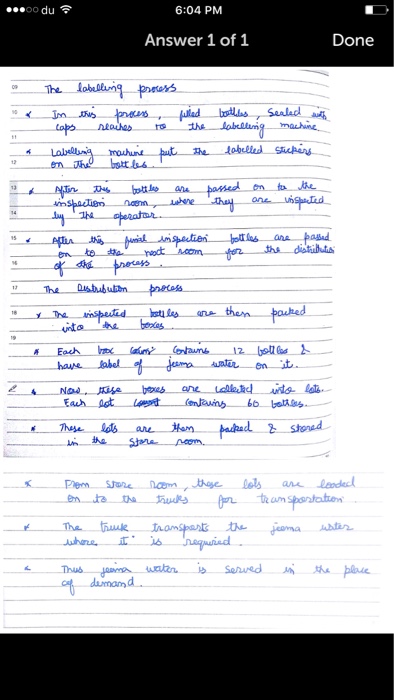 du
6:04 PM
Answer 1 of 1
Done
09
The labelling process
10
In this process, filled bottles, sealed with
caps reaches to the labelling machine
11
Labelling machine put the labelled stickers
12
on the bottles.
13
After this bottles are passed on to the
inspection room, where they are inspected
14
by the operator.
15
After this final inspection bottles are passed
on to the next room for the distribution
16
of the process.
17
The Distribution process
18
The inspected bottles are then packed
into the boxes
19
Each box contains 12 bottles &
have label of jeema water on it.
Now, these boxes are collected into lots.
Each lot containing 60 bottles.
These lots are then packed & stored
in the store room.
From store room, these lots are loaded
on to the trucks for transportation
The truck transports the jeema water
where it is required.
Thus jeema water is served in the place
of demand.